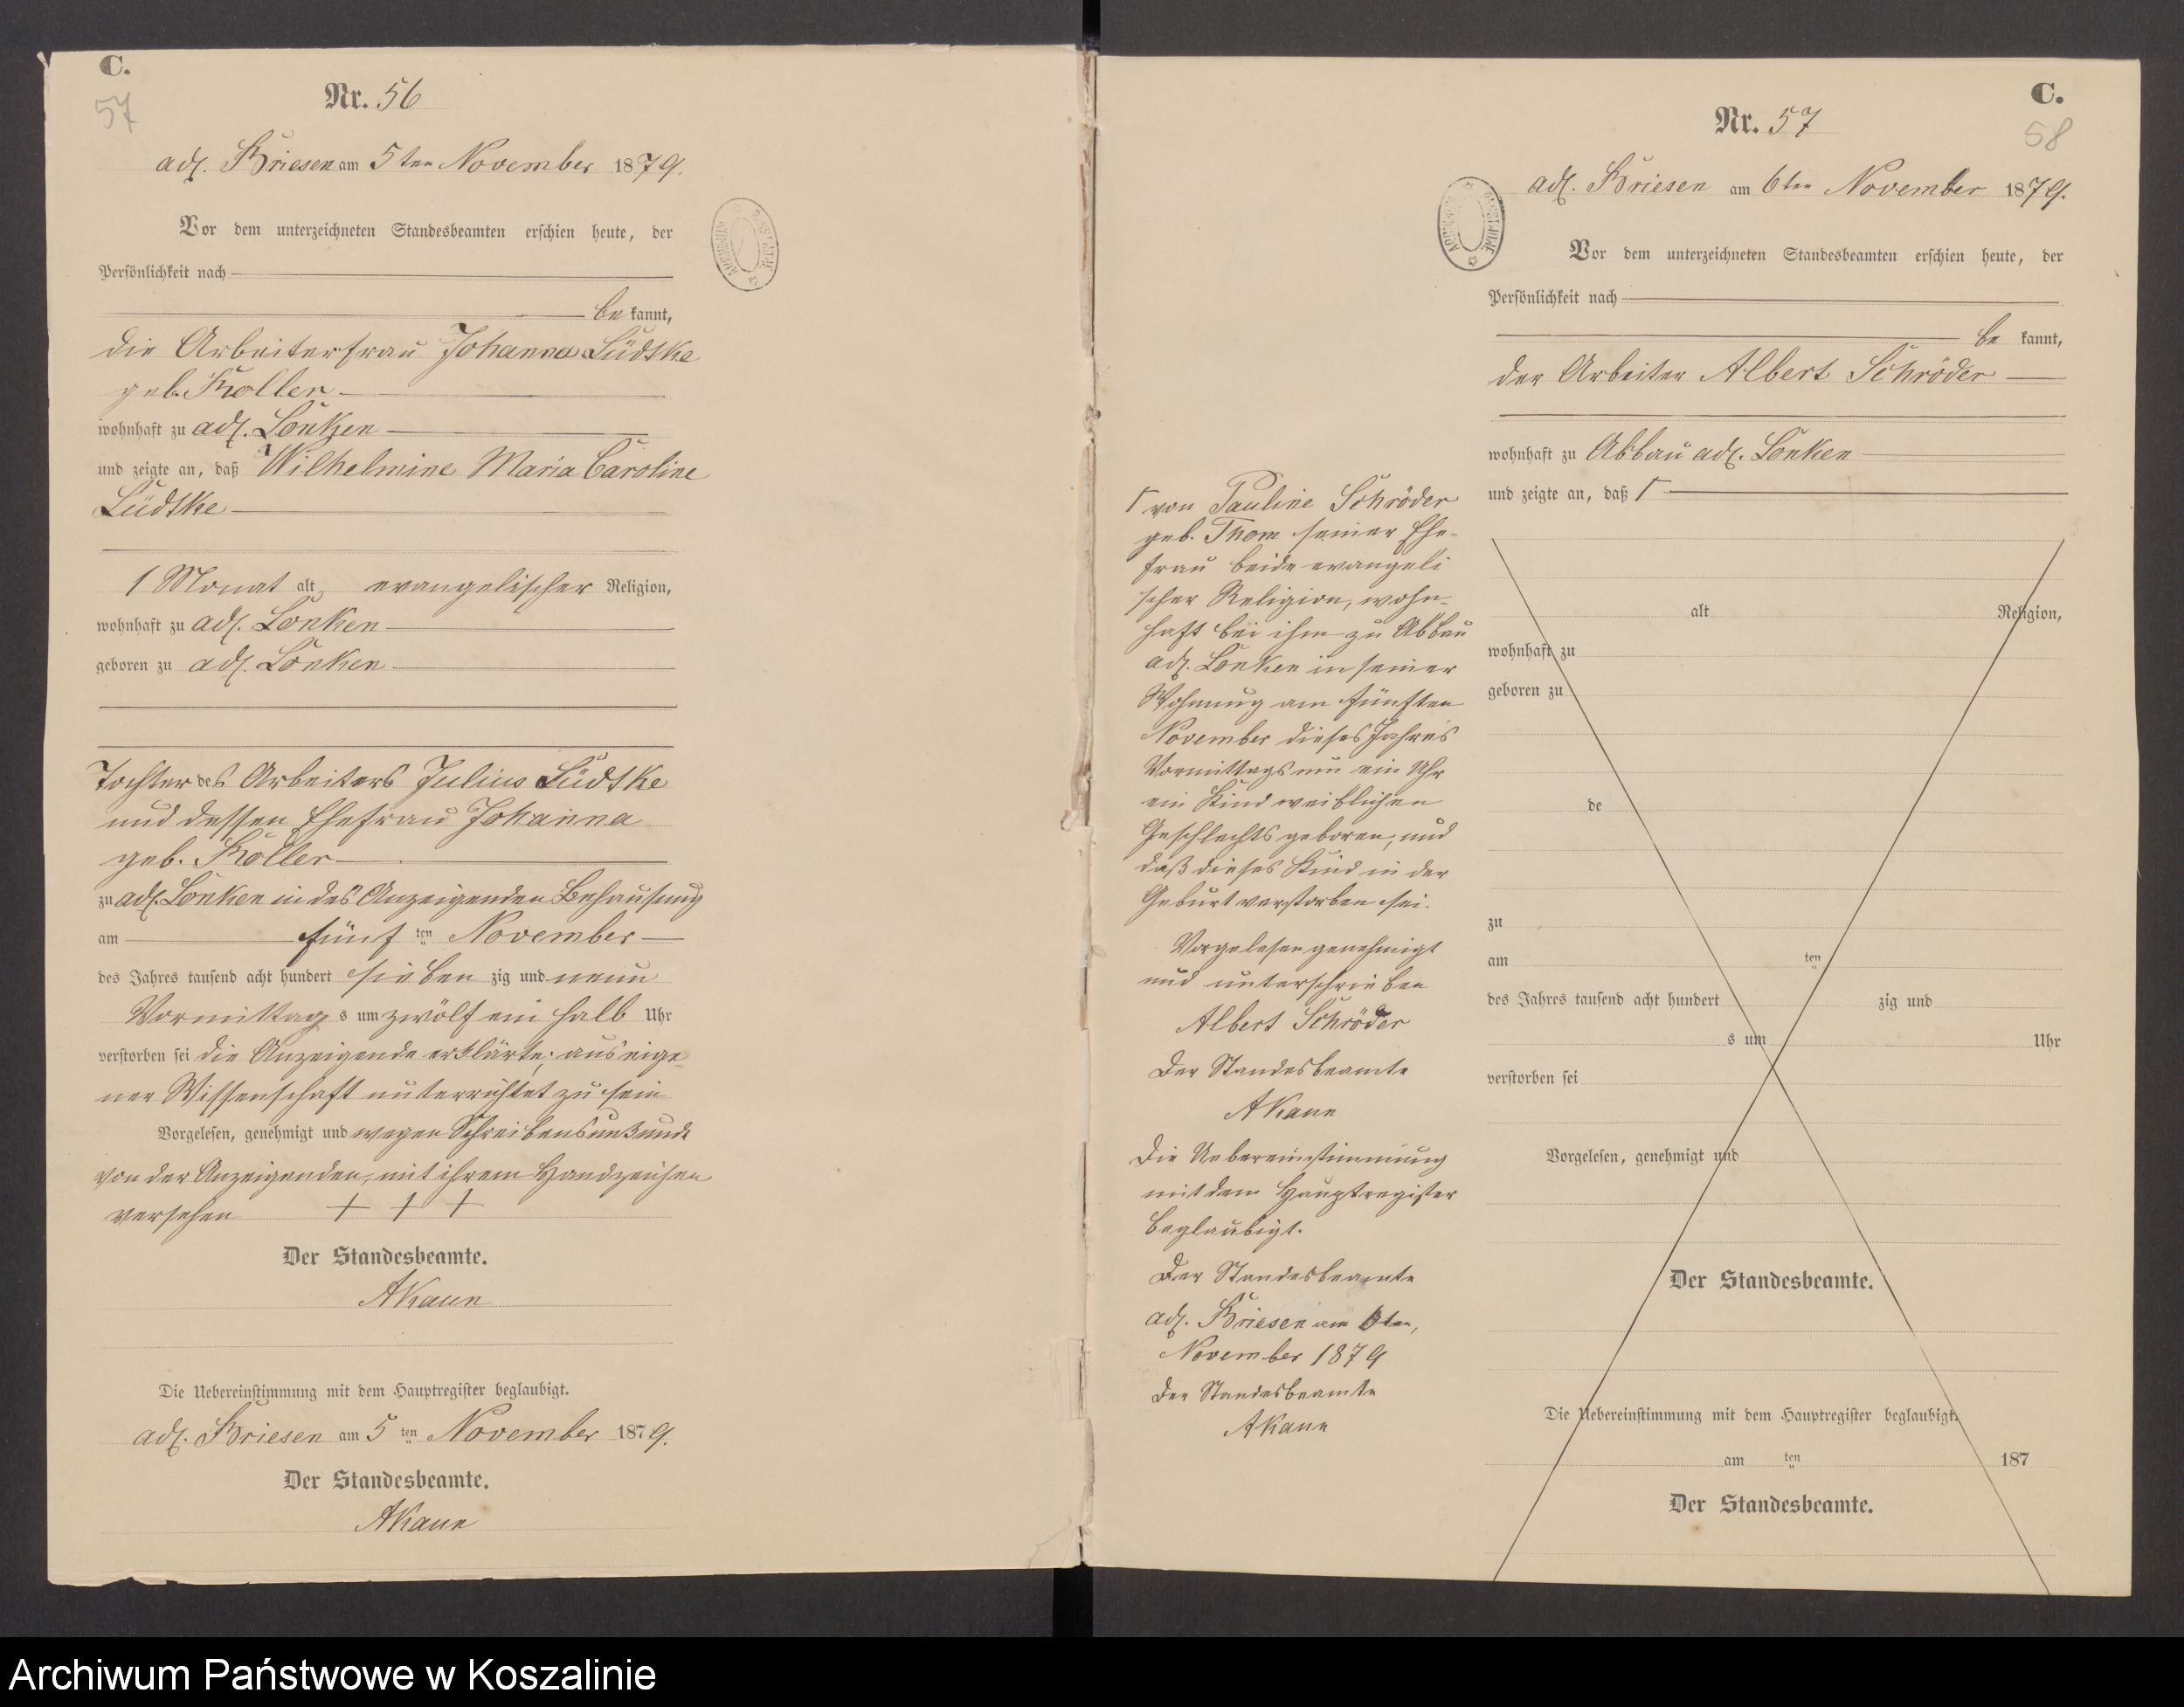 C.
57
Nr. 56
adl. Briesen am 5ten November 1879.
Vor dem unterzeichneten Standesbeamten erschien heute, der
Persönlichkeit nach
be kannt,
die Arbeiterfrau Johanna Lüdtke
geb. Koller
wohnhaft zu adl. Lonken
und zeigte an, daß Wilhelmine Maria Caroline
Lüdtke
1 Monat alt, evangelischer Religion,
wohnhaft zu adl. Lonken
geboren zu adl. Lonken
Tochter des Arbeiters Julius Lüdtke
und dessen Ehefrau Johanna
geb. Koller
zu adl. Lonken in des Anzeigenden Behausung
am fünf ten November
des Jahres tausend acht hundert sieben zig und neun
Vormittag s um zwölf ein halb Uhr
verstorben sei die Anzeigende erklärte, aus eige-
ner Wissenschaft unterrichtet zu sein
Vorgelesen, genehmigt und wegen Schreibensunkunde
von der Anzeigenden, mit ihrem Handzeichen
versehen + + +
Der Standesbeamte.
AKaun
Die Uebereinstimmung mit dem Hauptregister beglaubigt.
adl. Briesen am 5 ten November 1879.
Der Standesbeamte.
AKaun
C.
58
Nr. 57
adl. Briesen am 6ten November 1879.
Vor dem unterzeichneten Standesbeamten erschien heute, der
Persönlichkeit nach
be kannt,
der Arbeiter Albert Schröder
wohnhaft zu Abbau adl. Lonken
und zeigte an, daß Γ
Γ von Pauline Schröder
geb. Thom seiner Ehe-
frau beide evangeli
scher Religion, wohn-
haft bei ihm zu Abbau
adl. Lonken in seiner
Wohnung am fünften
November dieses Jahres
Vormittags um ein Uhr
ein Kind weiblichen
Geschlechts geboren, und
daß dieses Kind in der
Geburt verstorben sei.
Vorgelesen genehmigt
und unterschrieben
Albert Schröder
Der Standesbeamte
AKaun
Die Uebereinstimmung
mit dem Hauptregister
beglaubigt.
Der Standesbeamte
adl. Briesen am 6ten,
November 1879
Der Standesbeamte
AKaun
alt Religion,
wohnhaft zu
geboren zu
de
zu
am ten
des Jahres tausend acht hundert zig und
s um Uhr
verstorben sei
Vorgelesen, genehmigt und
Der Standesbeamte.
Die Uebereinstimmung mit dem Hauptregister beglaubigt.
am ten 187
Der Standesbeamte.
Archiwum Państwowe w Koszalinie